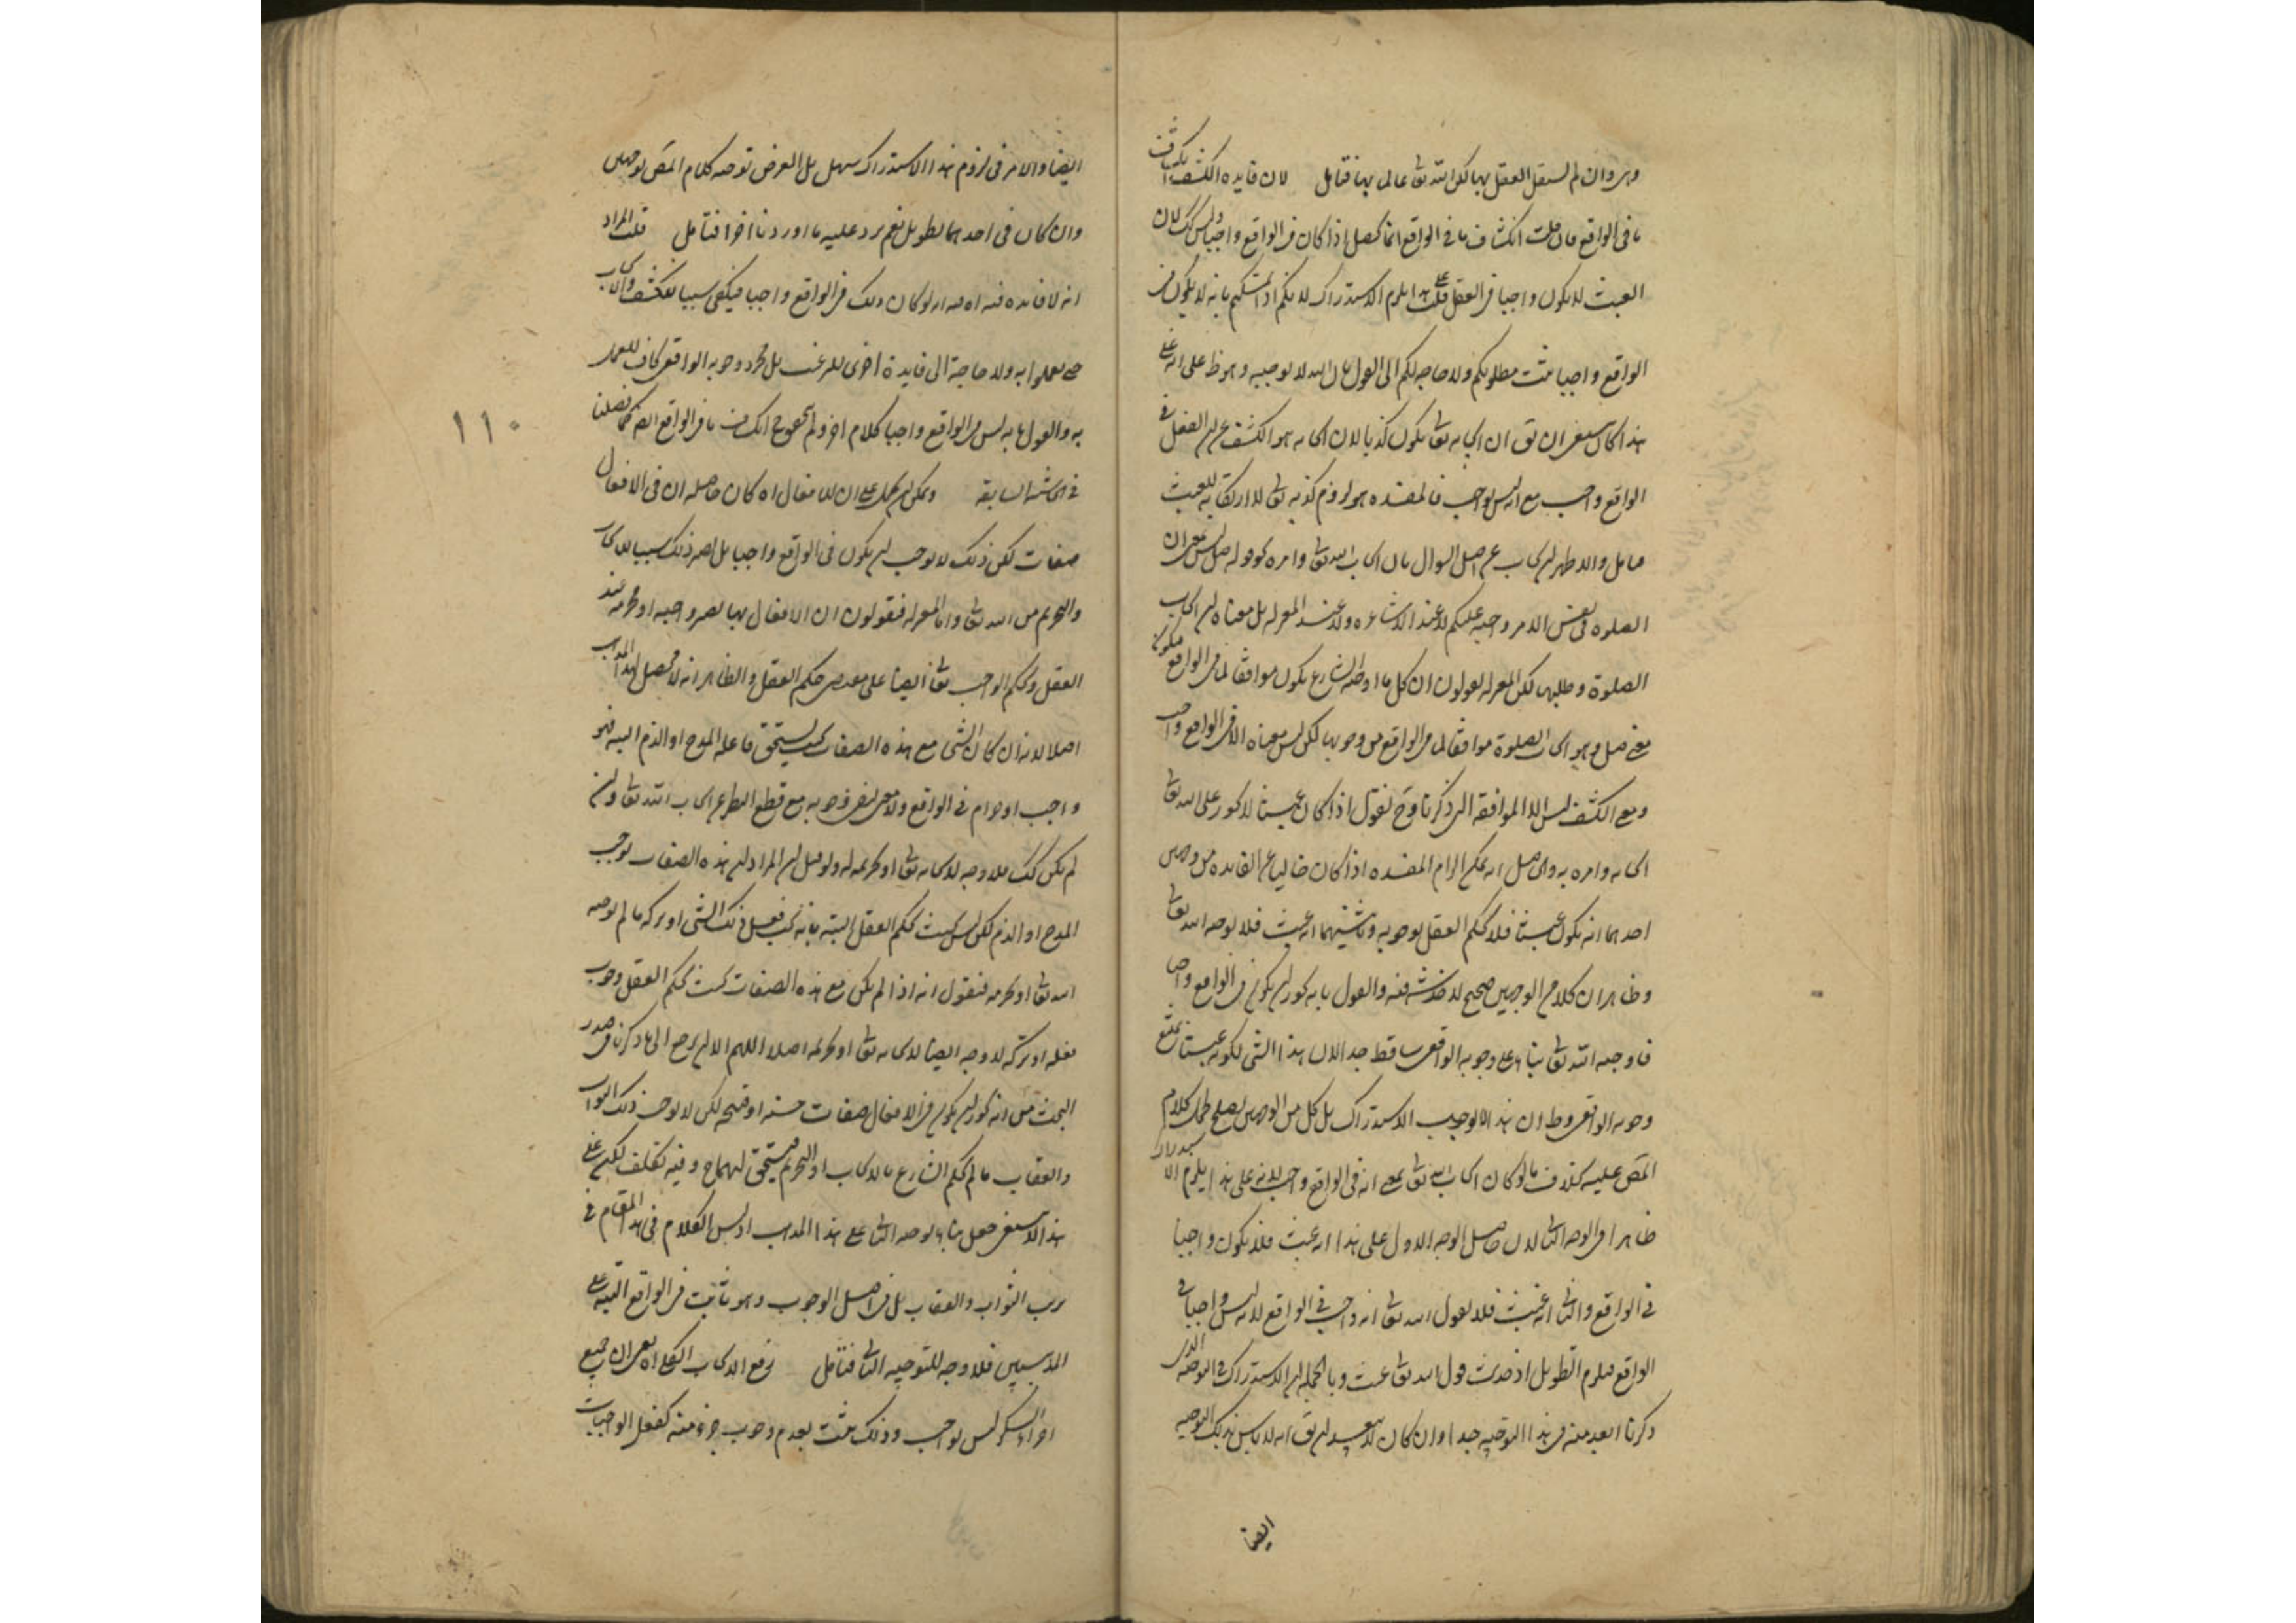 وهو وان لم يستقل العقل بها لكن الله تعالى عالم بها فتأمل لان فايدة الكشف انكشاف
ما فى الواقع فان قلت انكشاف ما فى الواقع انما يحصل اذا كان فى الواقع واجبا وليس كك لان
العبث لا يكون واجبا فى العقل قلت على هذا يلزم الاستدراك لانكم اذا سلمتم بانه لا يكون فى
الواقع واجبا يثبت مطلوبكم ولا حاجة لكم الى القول بان الله لا يوجبه وهو ظ على انه على
هذا كان ينبغى ان يق ان ايجابه تعالى يكون كذبا لان ايجابه هو الكشف عن ان الفعل فى
الواقع واجب مع انه ليس بواجب فالمفسدة هو لزوم كذبه تعالى لا ارتكابه للعبث
فتأمل والاظهر ان يجاب عن اصل السؤال بان ايجاب الله تعالى وامره كقوله صل ليس معناه ان
الصلوة فى نفس الامر واجبة عليكم لا عند الاشاعره ولا عند المعتزلة بل معناه ايجاب
الصلوة وطلبها لكن المعتزلة يقولون ان كل ما اوجبه الشارع يكون موافقا لما فى الواقع فيكون
معنى صل وهو ايجاب الصلوة موافقا لما فى الواقع من وجوبها لكن ليس معناه الا فى الواقع واجب
ومعنى الكشف ليس الا الموافقة التى ذكرنا وح نقول اذا كان عبثا لا يجوز على الله تعالى
ايجابه وامره به والحاصل انه يمكن الزام المفسدة اذا كان خاليا عن الفايدة من وجهين
احدهما انه يكون عبثا فلا يحكم العقل بوجوبه وثانيهما انه عبث فلا يوجبه الله تعالى
وظاهر ان كلا من الوجهين صحيح لا خدشة فيه والقول بانه يجوز ان يكون فى الواقع واجبا
فاوجبه الله تعالى بناء على وجوبه الواقعى ساقط جدا لان هذا الشى لكونه عبثا يمتنع
وجوبه الواقعى وظ ان هذا لا يوجب الاستدراك بل كل من الوجهين يصلح لحمل كلام
المص عليه بخلاف ما لو كان ايجاب الله تعالى بمعنى انه فى الواقع واجب لانه على هذا يلزم الاستدراك
ظاهرا فى الوجه الثانى لان حاصل الوجه الاول على هذا انه عبث فلا يكون واجبا
فى الواقع والثانى انه عبث فلا يقول الله تعالى انه واجب فى الواقع لانه ليس واجبا فى
الواقع فيلزم التطويل اذ حديث قول الله تعالى عبث وبالجملة الاستدراك فى التوجيه الذى
ذكرنا ابعد منه فى هذا التوجيه جدا وان كان لا يبعد ان يق انه لا باس بذلك التوجيه
ايضا
ايضا والامر فى لزوم هذا الاستدراك سهل بل الغرض توجيه كلام المص بوجهين
وان كان فى احدهما تطويل نعم يرد عليه ما اوردنا اخرا فتأمل قلت المراد
انه لا فايدة فيه اه فيه انه لو كان ذلك فى الواقع واجبا فيكفى سببا للكشف والايجاب
حتى يعملوا به ولا حاجة الى فايدة اخرى بل مجرد وجوبه الواقعى كاف للعمل
به والقول بانه ليس فى الواقع واجبا كلام اخر ما فى الواقع كما فصلنا
فى الحاشية السابقة ويمكن ان يحمل على ان للافعال اه كان حاصله ان فى الافعال
صفات لكن ذلك لا يوجب ان يكون فى الواقع واجبا بل يصير ذلك سببا للايجاب
والتحريم من الله تعالى واما المعتزلة فيقولون ان الافعال بها يصير واجبه او محرمة عند
العقل وحكم الواجب تعالى ايضا على مقتضى حكم العقل والظاهر انه لا محصل لهذا المذهب
اصلا لانه ان كان الشى مع هذه الصفات بحيث يستحق فاعله المدح او الذم البتة فهو
واجب او حرام فى الواقع ولا معنى لنفى وجوبه مع قطع النظر عن ايجاب الله تعالى وان
لم يكن كك فلا وجه لايجابه تعالى او تحريمه له ولو قيل ان المراد ان هذه الصفات توجب
المدح او الذم لكن ليس بحيث يحكم العقل البتة بانه يجب فعل ذلك الشى او تركه ما لم يوجبه
الله تعالى او يحرمه فنقول انه اذا لم يكن مع هذه الصفات بحيث يحكم العقل وجوب
فعله او تركه لا وجه ايضا لايجابه تعالى او تحريمه اصلا اللهم الا ان يرجع الى ما ذكرنا فى صدر
البحث من انه يجوز ان يكون فى الافعال صفات حسنه او قبيحة لكن لا يوجب ذلك الثواب
والعقاب ما لم يحكم الشارع بالايجاب او التحريم وفيه تكلف لكن على
هذا لا ينبغى جعل بناء الوجه الثانى على هذا المذهب اذ ليس الكلام فى هذا المقام فى
ترتب الثواب والعقاب بل فى اصل الوجوب وهو ثابت فى الواقع البتة على
المذهبين فلا وجه للتوجيه الثانى فتأمل رفع الايجاب الكلى اه يعنى ان جميع
افراد الشكر ليس بواجب وذلك يثبت بعدم وجوب جزء منه كفعل الواجبات
١١٠